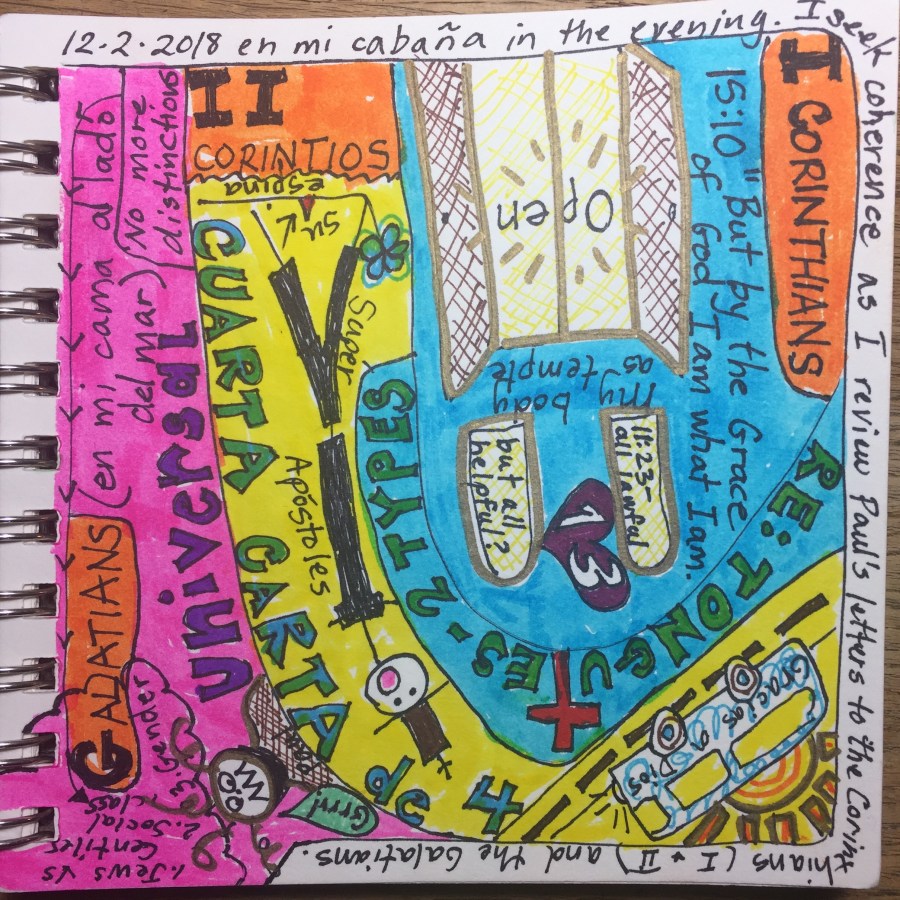 12·2·2018 en mi cabaña in the evening. I seek
coherence as I review Paul's letters to the Corin
thians (I + II) and the Galatians.
I CORINTHIANS
15:10 "But by the Grace
of God I am what I am.
Open
my body
as temple
11:23-
all lawful
but all
helpful?
13
RE: TONGUES - 2 TYPES
II
CORINTIOS
espina
su K
Super
Apóstoles
CUARTA CARTA
de
Gracias a
Dios
GALATIANS
(en mi cama al lado
del mar)
No more
distinctions
Universal
Grr!
1. Jews vs
Gentiles
2. Social
class
3. Gender